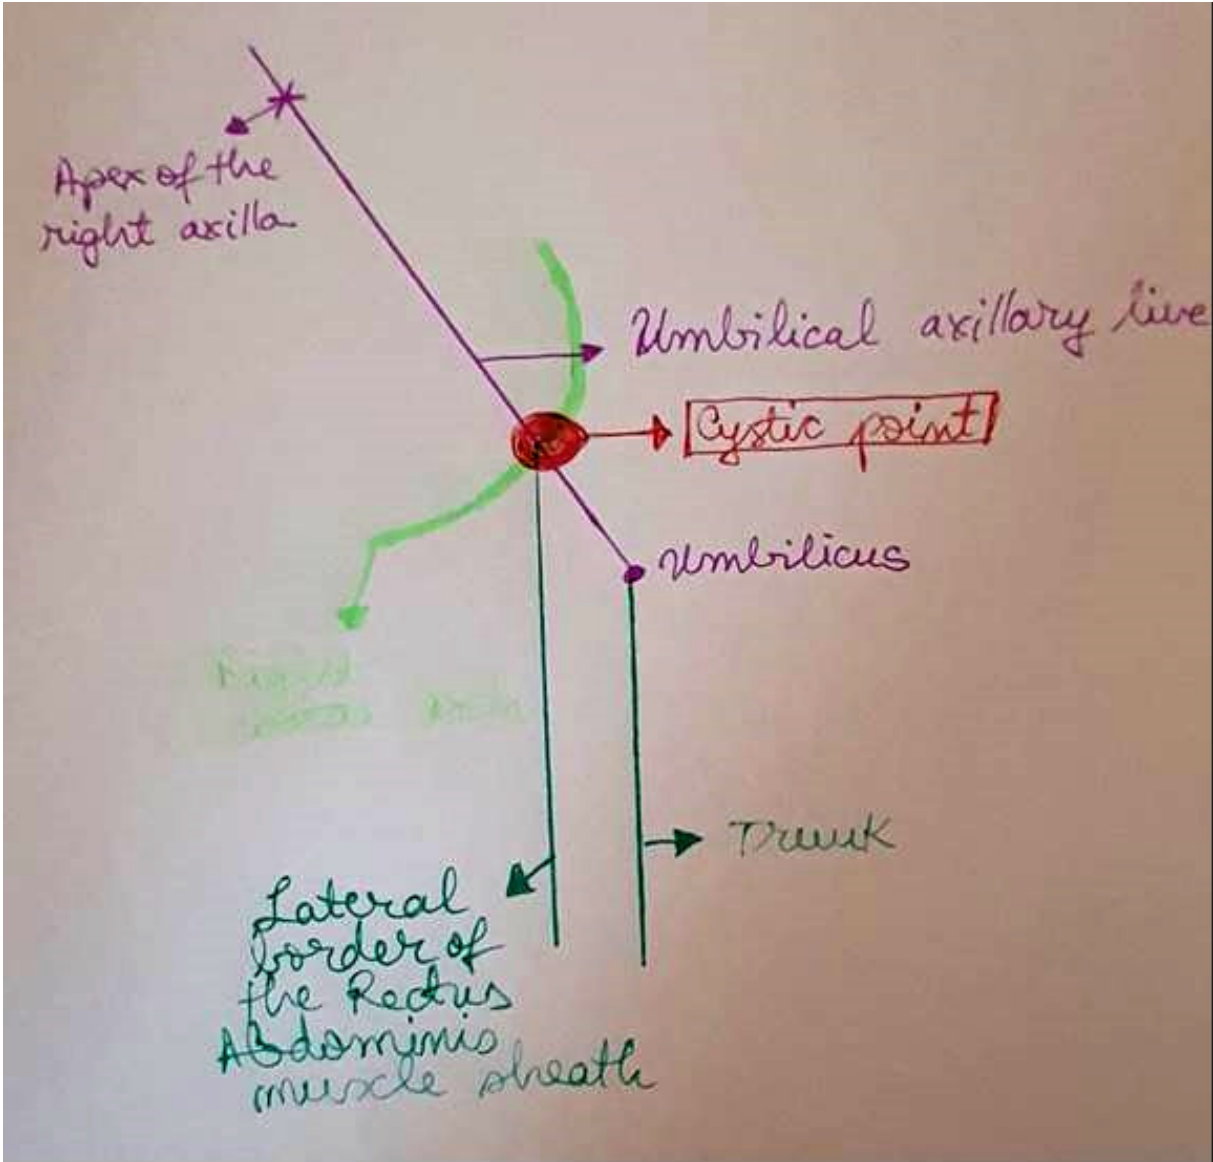 Apex of the
right axilla
Umbilical axillary line
Cystic point
Umbilicus
Trunk
Lateral
border of
the Rectus
Abdominis
muscle sheath